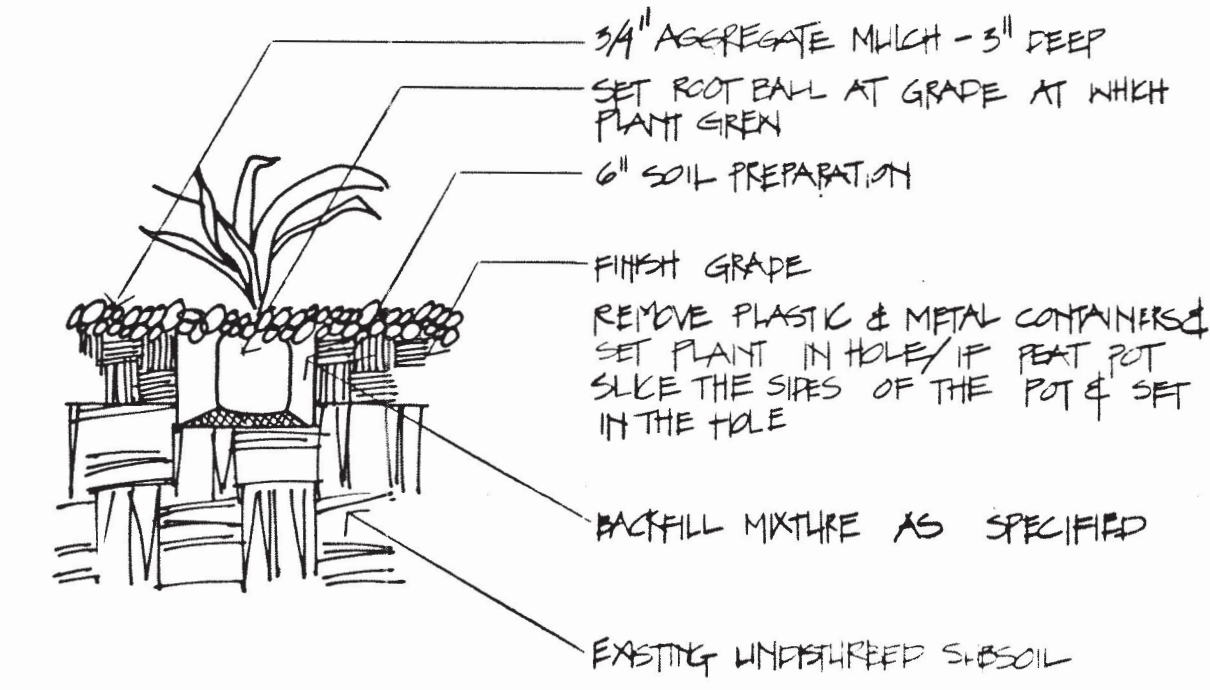 3/4" AGGREGATE MULCH - 3" DEEP
SET ROOT BALL AT GRADE AT WHICH
PLANT GREW
6" SOIL PREPARATION
FINISH GRADE
REMOVE PLASTIC & METAL CONTAINERS &
SET PLANT IN HOLE/IF PEAT POT
SLICE THE SIDES OF THE POT & SET
IN THE HOLE
BACKFILL MIXTURE AS SPECIFIED
EXISTING UNDISTURBED SUBSOIL